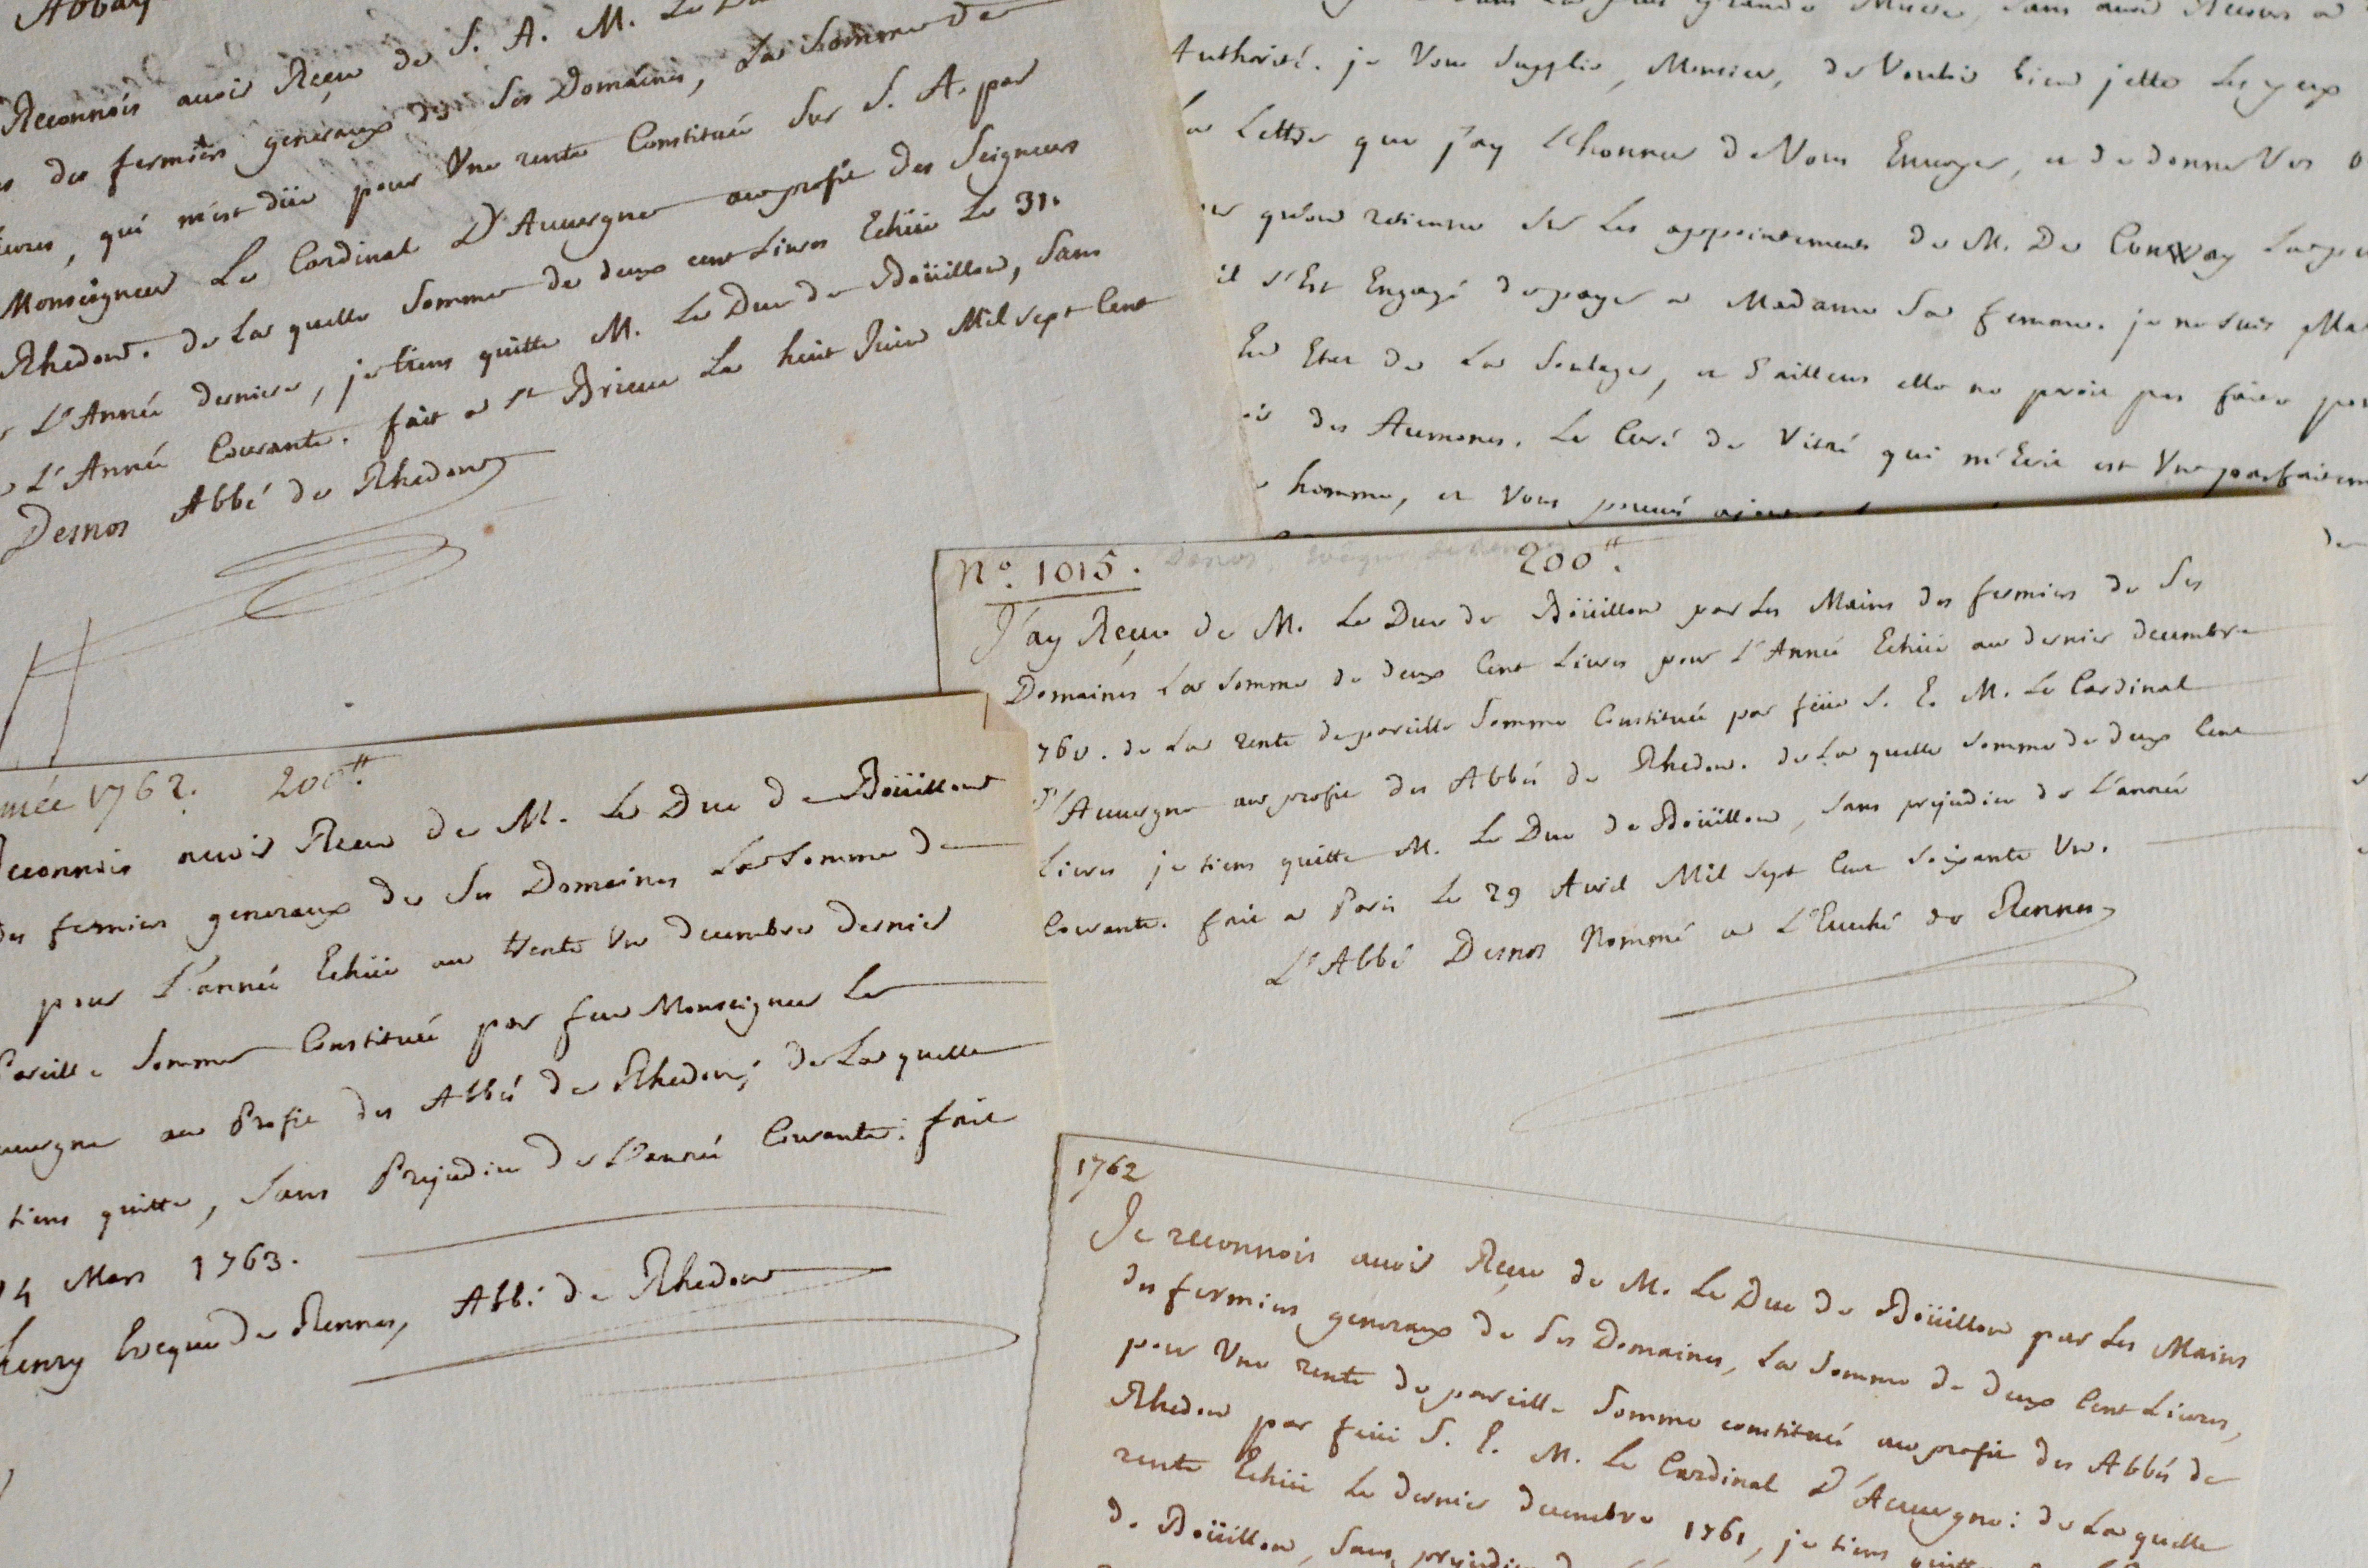 Abbay
Reconnois auoir Reçeu de S. A. M. Le
des fermiers generaux de Ses Domaines, La Somme de
Liures, qui m'est düe pour Vne rente Constituée Sur S. A. par
Monseigneur Le Cardinal D'Auuergne au profit des Seigneurs
Rhedon. de La quelle Somme de deux cent Liures Echüe Le 31.
L'Année derniere, je tiens quitte M. Le Duc de Boüillon, Sans
L'Année Courante. fait a St Brieuc Le huit Juin Mil sept Cent
Desnos Abbé de Rhedon
Authorité. je Vous Supplie, Monsieur, de Vouloir bien jetter Les yeux
La Lettre que j'ay L'honneur de Vous Enuoyer, et de donner Vos
qu'on retienne Sur Les appointements de M. De Conway
il s'Est Engagé de payer a Madame Sa femme. je ne suis
En Etat de La Soulager, et d'ailleurs elle ne peut pas
des Aumones. Le Curé de Vitré qui m'Ecrit est Vn parfaitement
homme, et Vous pouués
No. 1015. Desnos, Evêque de Rennes 200tt.
J'ay Reçeu de M. Le Duc de Boüillon par Les Mains des fermiers de Ses
Domaines La Somme de deux Cent Liures pour L'Année Echüe au dernier decembre
760. de La rente de pareille Somme Constituée par feüe S. E. M. Le Cardinal
D'Auuergne au profit des Abbés de Rhedon. de La quelle Somme de deux Cent
Liures je tiens quitte M. Le Duc de Boüillon, Sans prejudice de L'année
Courante. fait a Paris Le 29 Auril Mil Sept Cent Soixante Vn.
L'Abbé Desnos Nommé a L'Eueché de Rennes
née 1762. 200tt.
Reconnois auoir Receu de M. Le Duc de Boüillon
des fermiers generaux de Ses Domaines La Somme de
pour L'année Echüe au trente Vn decembre dernier
Pareille Somme Constituée par feu Monseigneur Le
uuergne au Profit des Abbés de Rhedon; de La quelle
tiens quitte, Sans Prejudice de L'année Courante: fait
14 Mars 1763.
henry Eveque de Rennes, Abbé de Rhedon
1762
Je reconnois auoir Reçeu de M. Le Duc de Boüillon par Les Mains
des fermiers generaux de Ses Domaines, La Somme de deux Cent Liures,
pour Vne rente de pareille Somme constituée au profit des Abbés de
Rhedon par feüe S. E. M. Le Cardinal D'Auuergne: de La quelle
rente Echüe Le dernier decembre 1761, je tiens quitte
de Boüillon, Sans prejudice